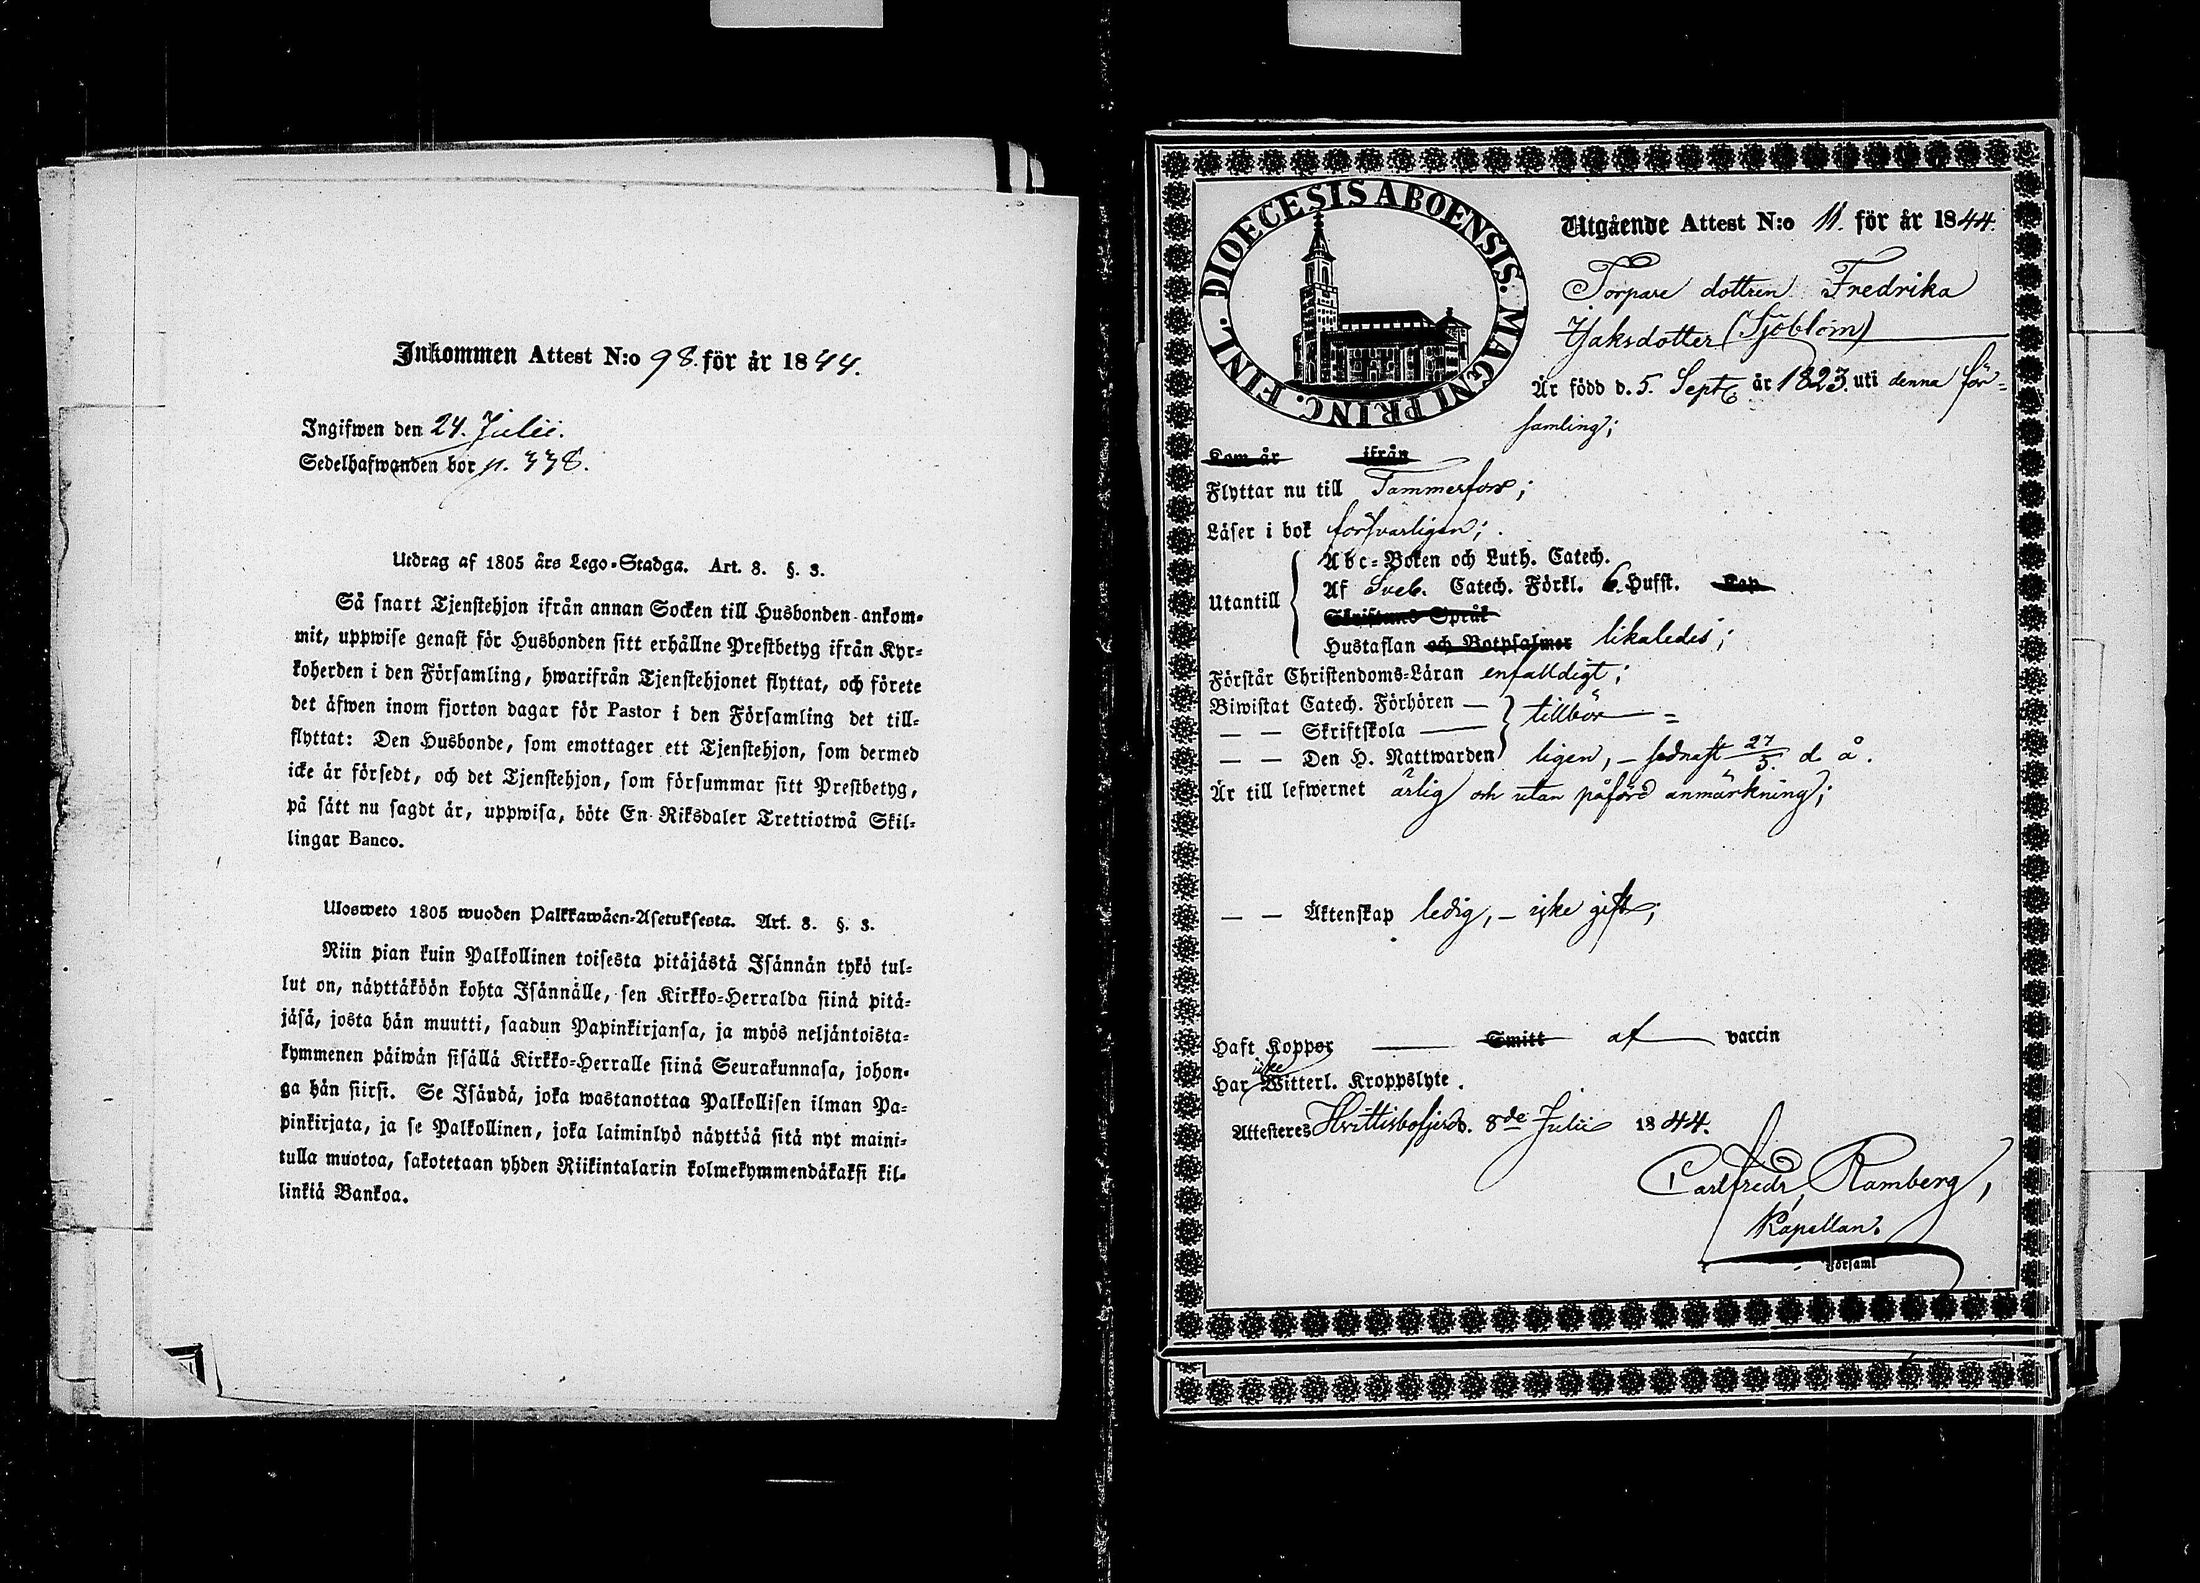 Inkommen Attest N:o 98. för år 1844.
Ingifwen den 24. Julii.
Sedelhafwanden bor p. 338.
Utdrag af 1805 års Lego-Stadga. Art. 8. §. 3.
Så snart Tjenstehjon ifrån annan Socken till Husbonden ankom-
mit, uppwise genast för Husbonden sitt erhållne Prestbetyg ifrån Kyr-
koherden i den Församling, hwarifrån Tjenstehjonet flyttat, och förete
det äfwen inom fjorton dagar för Pastor i den Församling det till-
flyttat: Den Husbonde, som emottager ett Tjenstehjon, som dermed
icke är försedt, och det Tjenstehjon, som försummar sitt Prestbetyg,
på sätt nu sagdt är, uppwisa, böte En Riksdaler Trettiotwå Skil-
lingar Banco.
Ulosweto 1805 wuoden Palkkawäen-Asetuksesta. Art. 8. §. 3.
Niin pian kuin Palkollinen toisesta pitäjästä Isännän tykö tul-
lut on, näyttäköön kohta Isännälle, sen Kirkko-Herralda siinä pitä-
jäsä, josta hän muutti, saadun Papinkirjansa, ja myös neljäntoista-
kymmenen päiwän sisällä Kirkko-Herralle siinä Seurakunnasa, johon-
ga hän siirsi. Se Isändä, joka wastanottaa Palkollisen ilman Pa-
pinkirjata, ja se Palkollinen, joka laiminlyö näyttää sitä nyt maini-
tulla muotoa, sakotetaan yhden Riikintalarin kolmekymmendäkaksi kil-
linkiä Bankoa.
DIOECESIS ABOENSIS. MAGNI PRINC. FINL.
Utgående Attest N:o 11. för år 1844.
Torpare dottren Fredrika
Isaksdotter (Sjöblom)
Är född d. 5. Sept. år 1823. uti denna för-
samling;
Kom år ifrån
Flyttar nu till Tammerfors;
Läser i bok försvarligen;
Abc-Boken och Luth. Catech.
Utantill Af Sveb. Catech. Förkl. 6. Hufst. Kap
Skriftens Språk
Hustaflan och Botpsalmer likaledes;
Förstår Christendoms-Läran enfalldigt;
Biwistat Catech. Förhören — tillbör-
— — Skriftskola —
— — Den H. Nattwarden ligen, – sednast 27/5. d. å.
Är till lefwernet ärlig och utan påförd anmärkning;
— — Äktenskap ledig, – icke gift;
Haft Koppor — Smitt af — vaccin
icke
Har Witterl. Kroppslyte.
Attesteres Hvittisbofjerd. 8de Julii 1844.
Carl Fredr. Ramberg,
Kapellan.
Församl